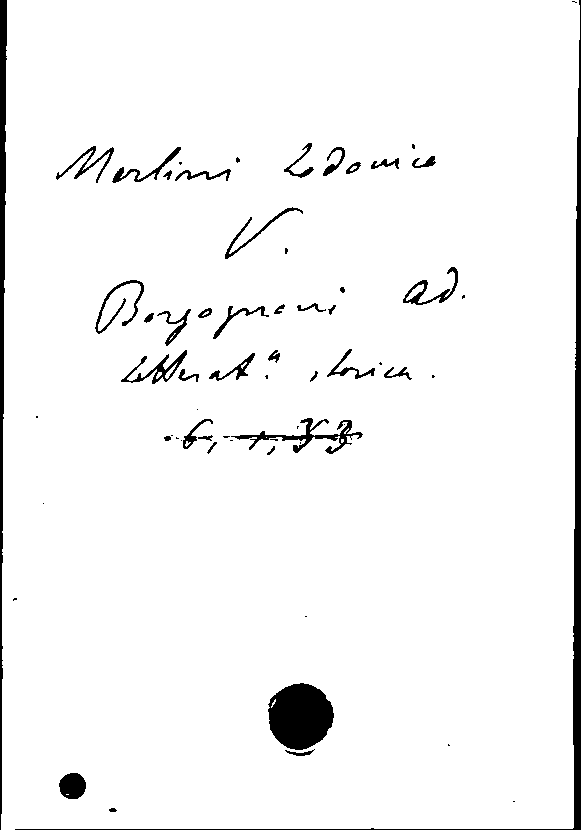 Merlini Lodovico
V.
Borgognoni Ad.
Letterat.ª storica.
6, 1, 33